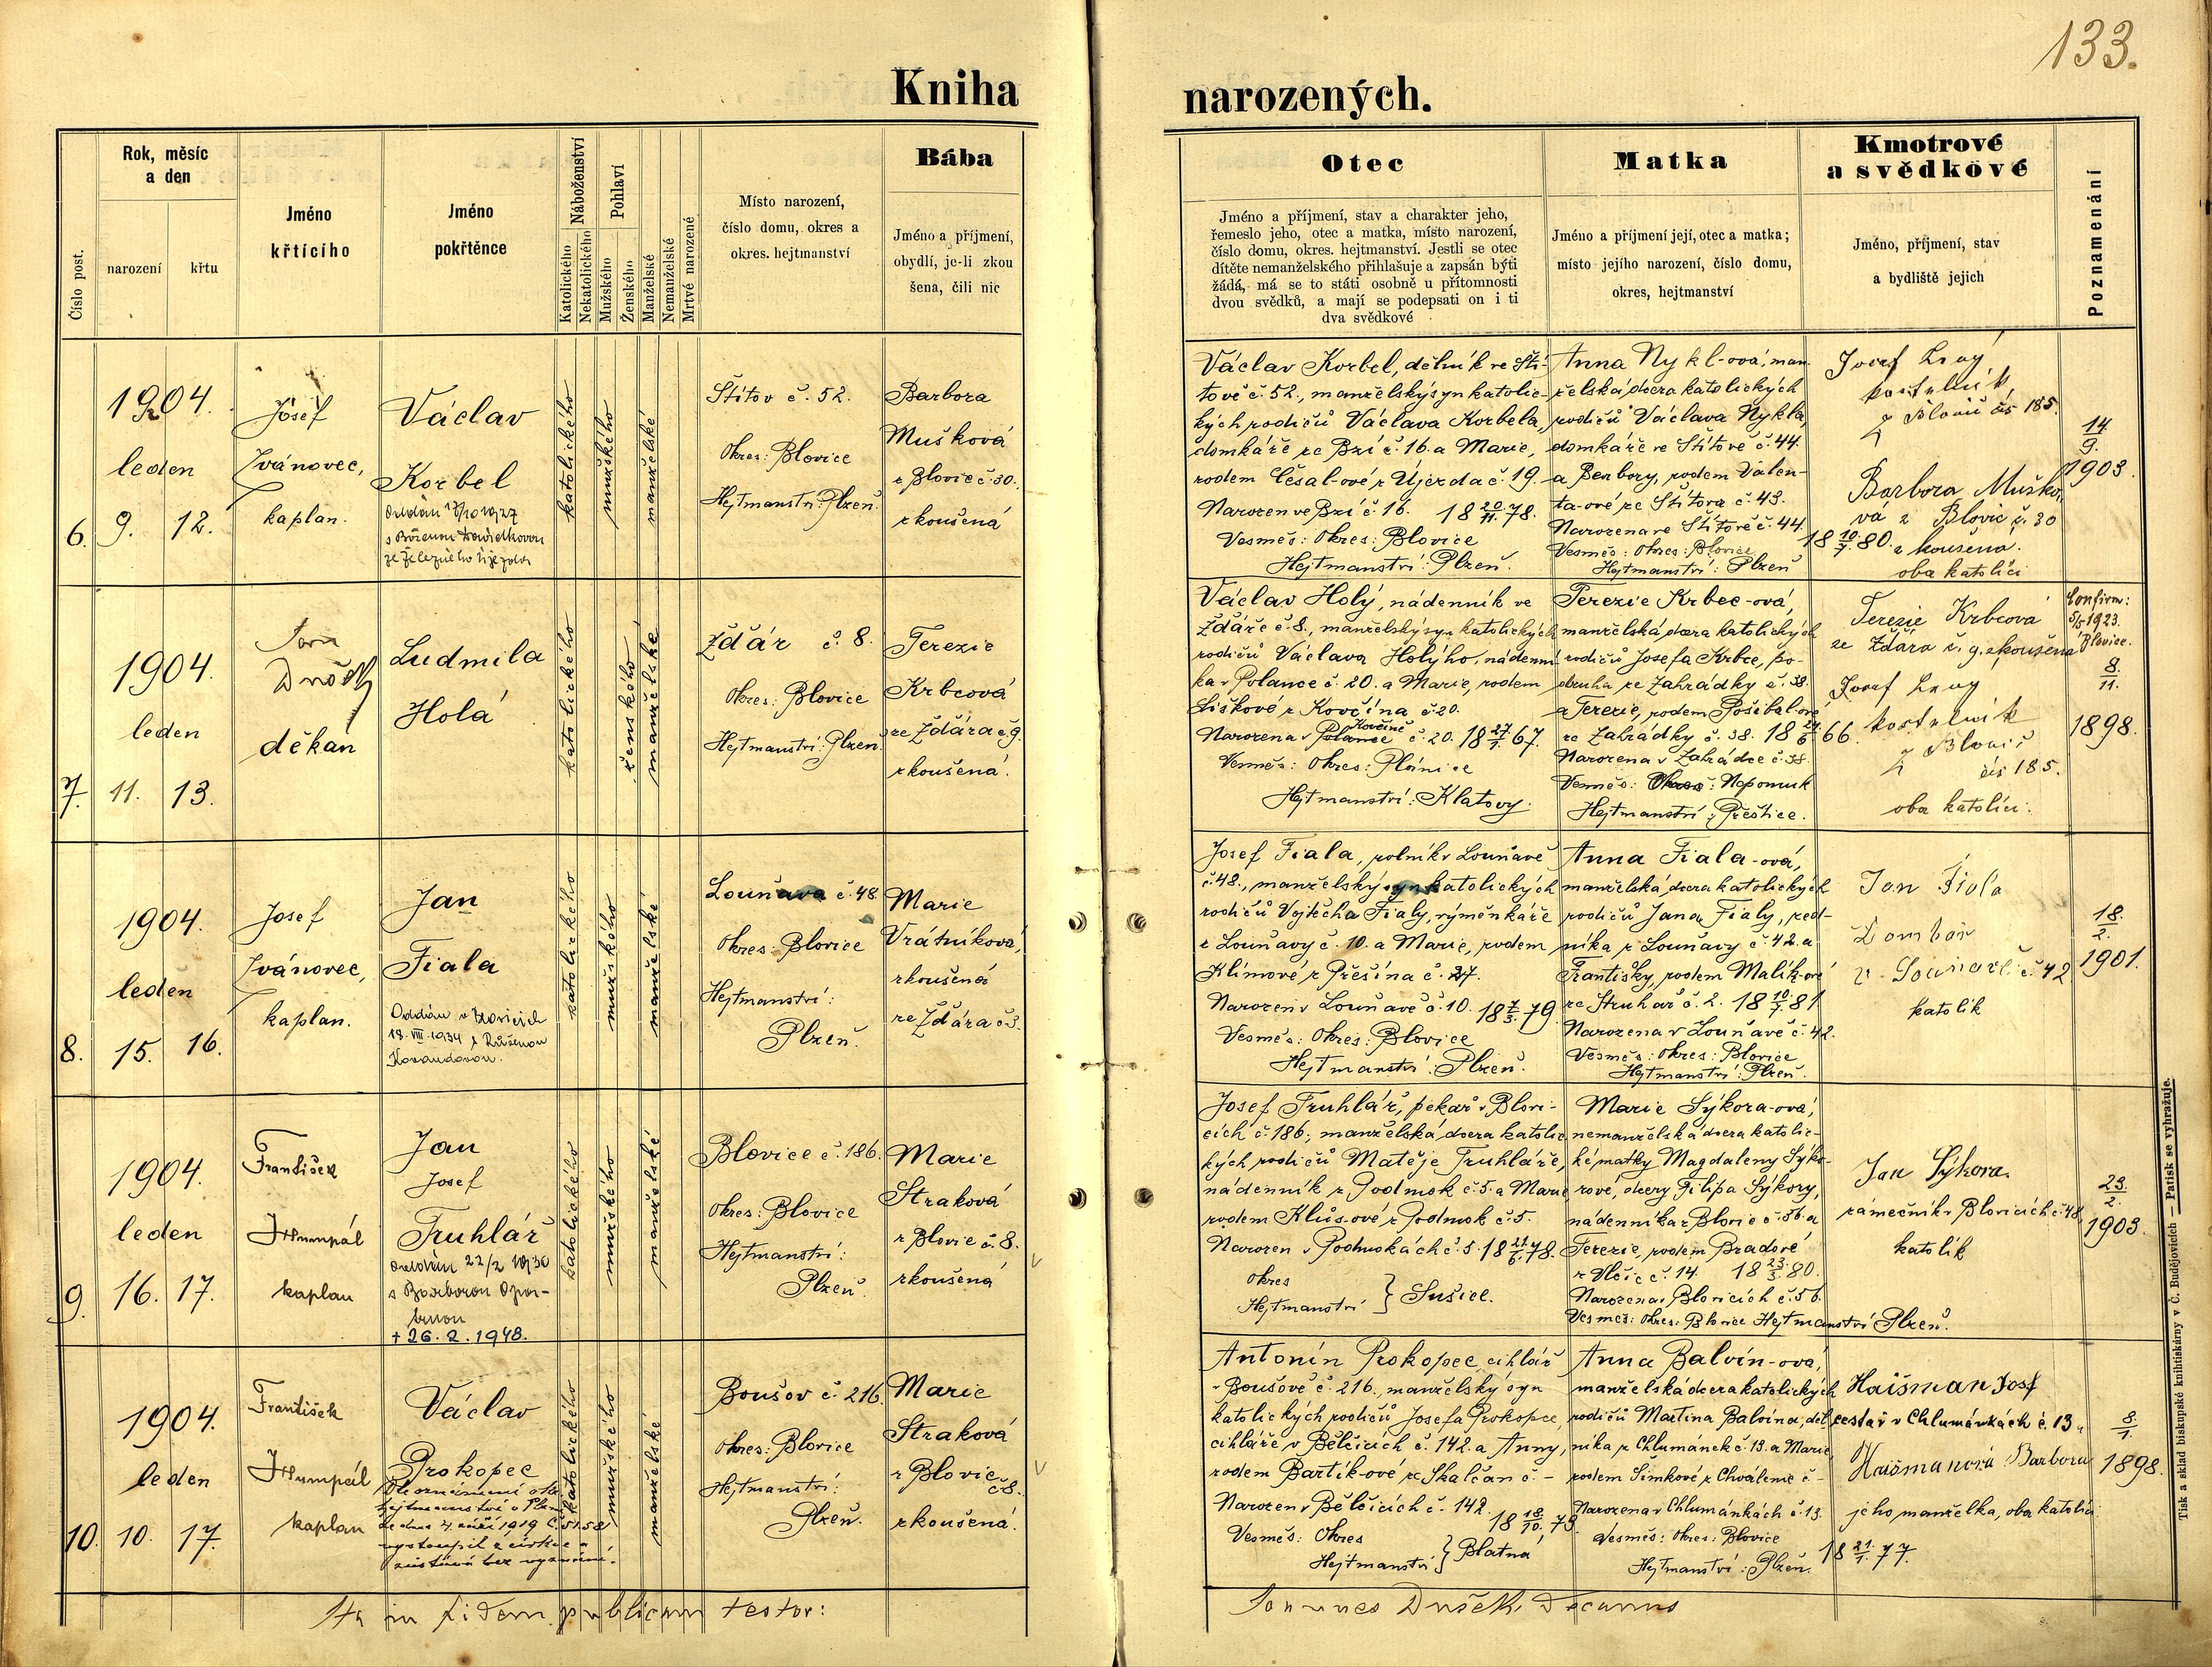 133.
Kniha narozených.
Číslo post.
Rok, měsíc
a den
narození
křtu
Jméno
křtícího
Jméno
pokřtěnce
Náboženství
Katolického
Nekatolického
Pohlaví
Mužského
Ženského
Manželské
Nemanželské
Mrtvě narozené
Místo narození,
číslo domu, okres a
okres. hejtmanství
Bába
Jméno a příjmení,
obydlí, je-li zkou
šena, čili nic
Otec
Jméno a příjmení, stav a charakter jeho,
řemeslo jeho, otec a matka, místo narození,
číslo domu, okres. hejtmanství. Jestli se otec
dítěte nemanželského přihlašuje a zapsán býti
žádá, má se to státi osobně u přítomnosti
dvou svědků, a mají se podepsati on i ti
dva svědkové
Matka
Jméno a příjmení její, otec a matka;
místo jejího narození, číslo domu,
okres, hejtmanství
Kmotrové
a svědkové
Jméno, příjmení, stav
a bydliště jejich
Poznamenání
6.
1904.
leden
9. 12.
Josef
Ivánovec,
kaplan.
Václav
Korbel
Oddán
s Boženou
katolického
mužského
manželské
Štítov č. 52.
Okres: Blovice
Hejtmanství: Plzeň.
Barbora
Mušková
z Blovic č. 30.
zkoušená
Václav Korbel, dělník ve Ští-
tově č. 52, manželský syn katolic-
kých rodičů Václava Korbela,
domkáře ze Bzí č. 16. a Marie,
rodem Česal-ové z Újezda č. 19.
Narozen ve Bzí č. 16. 18 20/11. 78.
Vesměs: Okres: Blovice
Hejtmanství: Plzeň.
Anna Nykl-ová, man-
želská dcera katolických
rodičů Václava Nykla,
domkáře ve Štítově č. 44.
a Barbory, rodem Valen-
ta-ové ze Štítova č. 43.
Narozena ve Štítově č. 44.
18 10/7. 80.
Vesměs: Okres: Blovice
Hejtmanství: Plzeň
Josef
kostelník
z Blovic čís 185.
Barbora Muško-
vá z Blovic č. 30
zkoušená.
oba katolíci
14/9.
1903.
7.
1904.
leden
11. 13.
Jan
Dušek
děkan
Ludmila
Holá
katolického
ženského
manželské
Ždár č. 8.
Okres: Blovice
Hejtmanství: Plzeň.
Terezie
Krbcová
ze Ždára č 9.
zkoušená.
Václav Holý, nádenník ve
Ždáře č. 8., manželský syn katolických
rodičů Václava Holýho, nádenní-
ka v Polance č. 20. a Marie, rodem
Liškové z Kovčína č. 20.
Narozena v Polance Kovčíně č. 20. 18 27/1. 67.
Vesměs: Okres: Plánice
Hejtmanství: Klatovy.
Terezie Krbec-ová,
manželská dcera katolických
rodičů Josefa Krbce, po-
druha ze Zahrádky č. 38.
a Terezie, rodem Pošibal-ové
ze Zahrádky č. 38. 18 24/6 66.
Narozena v Zahrádce č. 38.
Vesměs: Okres: Nepomuk
Hejtmanství: Přeštice.
Terezie Krbcová
ze Ždára č. 9. zkoušena
Josef
kostelník
z Blovic
čís 185.
oba katolíci.
Confirm:
5/5 1923.
Blovice.
8/11.
1898.
8.
1904.
leden
15. 16.
Josef
Ivánovec,
kaplan.
Jan
Fiala
Oddán v Blovicích
18. VIII. 1934 s Růženou
katolického
mužského
manželské
Louňava č. 48
Okres: Blovice
Hejtmanství:
Plzeň.
Marie
Vrátníková,
zkoušená
ze Ždára č 3.
Josef Fiala, rolník v Louňavě
č. 48., manželský syn katolických
rodičů Vojtěcha Fialy, výměnkáře
z Louňavy č. 10. a Marie, rodem
Klímové z Přešína č. 27.
Narozen v Louňavě č. 10. 18 7/3. 79.
Vesměs: Okres: Blovice
Hejtmanství: Plzeň.
Anna Fiala-ová,
manželská dcera katolických
rodičů Jana Fialy,
níka z Louňavy č. 42. a
Františky, rodem Malík-ové
ze Struhař č. 2. 18 10/7. 81
Narozena v Louňavě č. 42.
Vesměs: Okres: Blovice
Hejtmanství: Plzeň.
Jan Fiala
z Louňové č. 42
katolík
18/2.
1901.
9.
1904.
leden
16. 17.
František
Humpál
kaplan
Jan
Josef
Truhlář
Oddán 22/2 1930
s Barborou
+ 26. 2. 1948.
katolického
mužského
manželské
Blovice č. 186.
Okres: Blovice
Hejtmanství:
Plzeň
Marie
Straková
z Blovic č. 8.
zkoušená
Josef Truhlář, pekař v Blovi-
cích č. 186; manželská dcera katolic-
kých rodičů Matěje Truhláře,
nádenník z Podmok č. 5. a Marie
rodem Klůs-ové z Podmok č. 5.
Narozen v Podmokách č. 5. 18 21/6. 78.
Okres
Hejtmanství } Sušice.
Marie Sýkora-ová,
nemanželská dcera katolic-
ké matky Magdaleny Sýko-
rové, dcery Filipa Sýkory,
nádenníka z Blovic č. 56. a
Terezie, rodem Bradové
z Vlčic č. 14. 18 23/3. 80.
Narozena v Blovicích č. 56.
Vesměs: Okres: Blovice Hejtmanství Plzeň.
Jan Sýkora.
zámečník v Blovicích č. 48
katolík
23/2.
1903.
10.
1904.
leden
10. 17.
František
Humpál
kaplan
Václav
Prokopec
Dle oznámení
hejtmanství v Plzni
ze dne 4. září 1919 č. 51.581
vystoupil z církve a
zůstává bez vyznání.
katolického
mužského
manželské
Boušov č. 216.
Okres: Blovice
Hejtmanství:
Plzeň.
Marie
Straková
z Blovic
č. 8.
zkoušená.
Antonín Prokopec, cihlář
v Boušově č. 216., manželský syn
katolických rodičů Josefa Prokopce,
cihláře v Bělčicích č. 142. a Anny,
rodem Bartík-ové ze Skalčan č. –
Narozen v Bělčicích č. 142.
18 18/10. 79.
Vesměs: Okres
Hejtmanství } Blatná
Anna Balvín-ová,
manželská dcera katolických
rodičů Martina Balvína, děl-
níka z Chlumánek č. 13. a Marie
rodem Šimkové z Chválenic č –
Narozena v Chlumánkách č. 13.
Vesměs: Okres: Blovice 18 21/1. 77.
Hejtmanství: Plzeň.
Haišman Josf
cestář v Chlumánkách č. 13 a
Haišmanová Barbora
jeho manželka, oba katolíci.
8/1.
1898.
Ita in fidem publicam testor:
Joannes Dušek, Decanus
Tisk a sklad biskupské knihtiskárny v Č. Budějovicích — Patisk se vyhražuje.